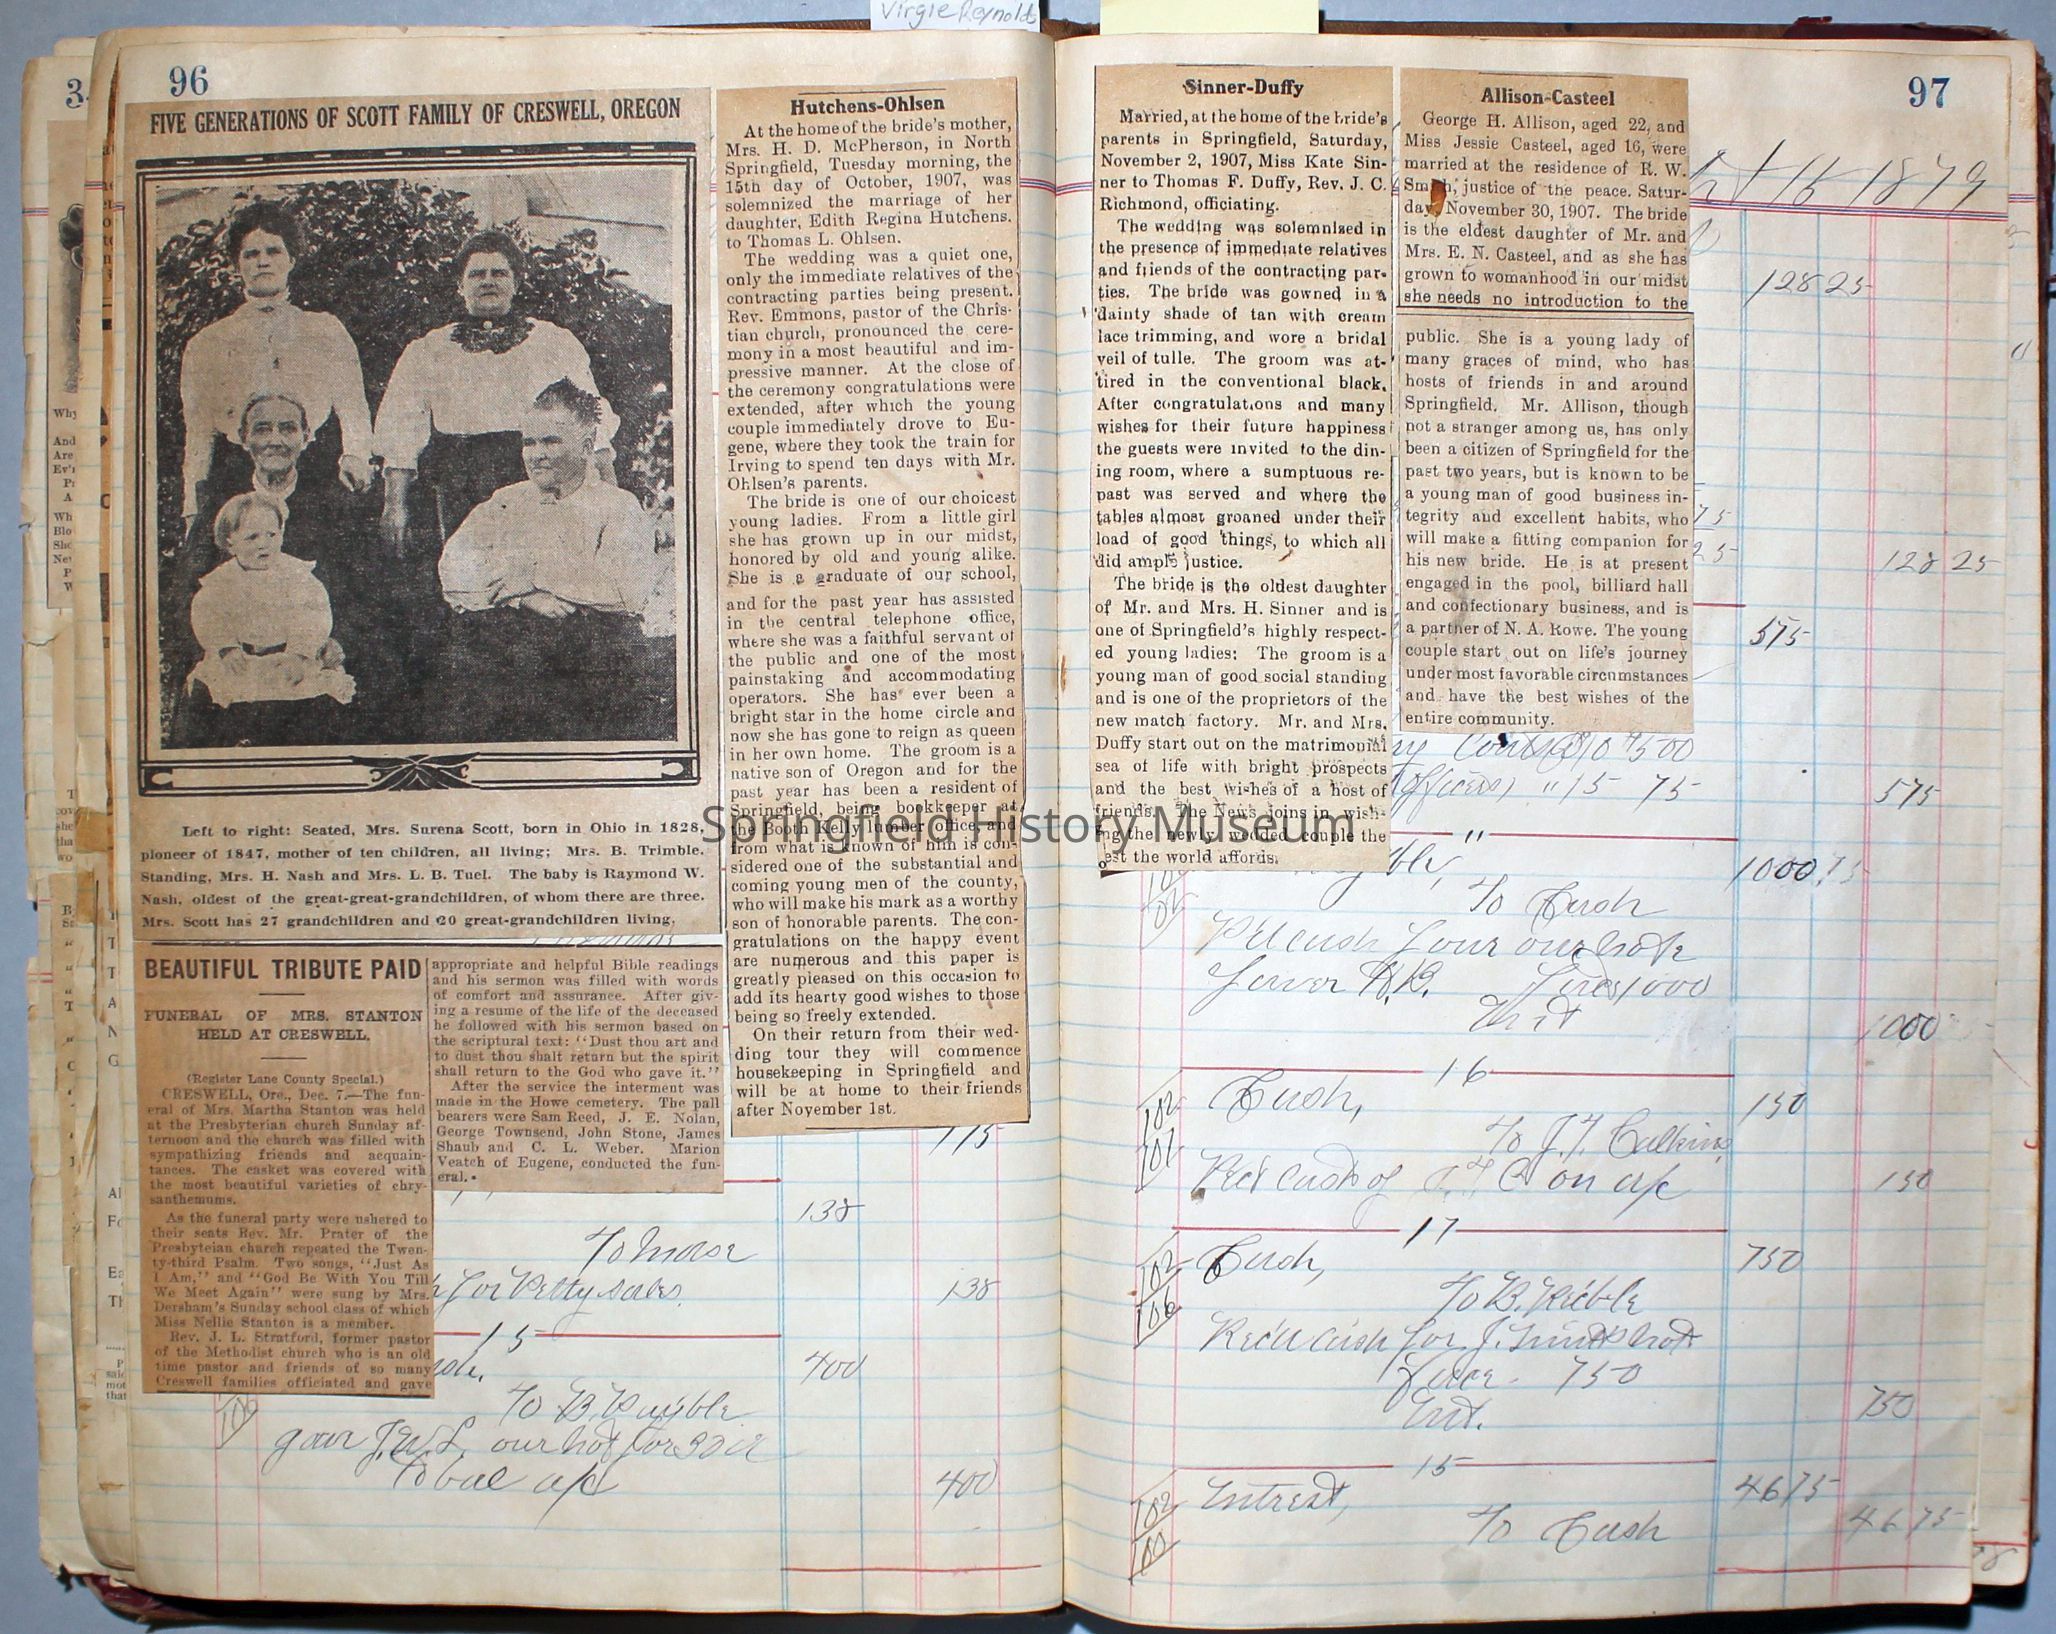 Virgie Reynolds
96
FIVE GENERATIONS OF SCOTT FAMILY OF CRESWELL, OREGON
Left to right: Seated, Mrs. Surena Scott, born in Ohio in 1828,
pioneer of 1847, mother of ten children, all living; Mrs. B. Trimble.
Standing, Mrs. H. Nash and Mrs. L. B. Tuel. The baby is Raymond W.
Nash, oldest of the great-great-grandchildren, of whom there are three.
Mrs. Scott has 27 grandchildren and 20 great-grandchildren living.
BEAUTIFUL TRIBUTE PAID
FUNERAL OF MRS. STANTON
HELD AT CRESWELL.
(Register Lane County Special.)
CRESWELL, Ore., Dec. 7.—The fun-
eral of Mrs. Martha Stanton was held
at the Presbyterian church Sunday af-
ternoon and the church was filled with
sympathizing friends and acquain-
tances. The casket was covered with
the most beautiful varieties of chry-
santhemums.
As the funeral party were ushered to
their seats Rev. Mr. Prater of the
Presbyteian church repeated the Twen-
ty-third Psalm. Two songs, "Just As
I Am," and "God Be With You Till
We Meet Again" were sung by Mrs.
Dersham's Sunday school class of which
Miss Nellie Stanton is a member.
Rev. J. L. Stratford, former pastor
of the Methodist church who is an old
time pastor and friends of so many
Creswell families officiated and gave
appropriate and helpful Bible readings
and his sermon was filled with words
of comfort and assurance. After giv-
ing a resume of the life of the deceased
he followed with his sermon based on
the scriptural text: "Dust thou art and
to dust thou shalt return but the spirit
shall return to the God who gave it."
After the service the interment was
made in the Howe cemetery. The pall
bearers were Sam Reed, J. E. Nolan,
George Townsend, John Stone, James
Shaub and C. L. Weber. Marion
Veatch of Eugene, conducted the fun-
eral.
Hutchens-Ohlsen
At the home of the bride's mother,
Mrs. H. D. McPherson, in North
Springfield, Tuesday morning, the
15th day of October, 1907, was
solemnized the marriage of her
daughter, Edith Regina Hutchens.
to Thomas L. Ohlsen.
The wedding was a quiet one,
only the immediate relatives of the
contracting parties being present.
Rev. Emmons, pastor of the Chris-
tian church, pronounced the cere-
mony in a most beautiful and im-
pressive manner. At the close of
the ceremony congratulations were
extended, after which the young
couple immediately drove to Eu-
gene, where they took the train for
Irving to spend ten days with Mr.
Ohlsen's parents.
The bride is one of our choicest
young ladies. From a little girl
she has grown up in our midst,
honored by old and young alike.
She is a graduate of our school,
and for the past year has assisted
in the central telephone office,
where she was a faithful servant of
the public and one of the most
painstaking and accommodating
operators. She has ever been a
bright star in the home circle and
now she has gone to reign as queen
in her own home. The groom is a
native son of Oregon and for the
past year has been a resident of
Springfield, being bookkeeper at
the Booth Kelly lumber office, and
from what is known of him is con-
sidered one of the substantial and
coming young men of the county,
who will make his mark as a worthy
son of honorable parents. The con-
gratulations on the happy event
are numerous and this paper is
greatly pleased on this occasion to
add its hearty good wishes to those
being so freely extended.
On their return from their wed-
ding tour they will commence
housekeeping in Springfield and
will be at home to their friends
after November 1st.
115
138
To Mdse
for Petty sales
138
15
400
To B. Payble
gave J.W.L. our not for
To bal a/c
400
Sinner-Duffy
Married, at the home of the bride's
parents in Springfield, Saturday,
November 2, 1907, Miss Kate Sin-
ner to Thomas F. Duffy, Rev. J. C.
Richmond, officiating.
The wedding was solemnized in
the presence of immediate relatives
and friends of the contracting par-
ties. The bride was gowned in a
dainty shade of tan with cream
lace trimming, and wore a bridal
veil of tulle. The groom was at-
tired in the conventional black.
After congratulations and many
wishes for their future happiness
the guests were invited to the din-
ing room, where a sumptuous re-
past was served and where the
tables almost groaned under their
load of good things, to which all
did ample justice.
The bride is the oldest daughter
of Mr. and Mrs. H. Sinner and is
one of Springfield's highly respect-
ed young ladies: The groom is a
young man of good social standing
and is one of the proprietors of the
new match factory. Mr. and Mrs.
Duffy start out on the matrimonial
sea of life with bright prospects
and the best wishes of a host of
friends. The News joins in wish-
ng the newly wedded couple the
est the world affords.
97
Allison-Casteel
George H. Allison, aged 22, and
Miss Jessie Casteel, aged 16, were
married at the residence of R. W.
Smith, justice of the peace. Satur-
day, November 30, 1907. The bride
is the eldest daughter of Mr. and
Mrs. E. N. Casteel, and as she has
grown to womanhood in our midst
she needs no introduction to the
public. She is a young lady of
many graces of mind, who has
hosts of friends in and around
Springfield. Mr. Allison, though
not a stranger among us, has only
been a citizen of Springfield for the
past two years, but is known to be
a young man of good business in-
tegrity and excellent habits, who
will make a fitting companion for
his new bride. He is at present
engaged in the pool, billiard hall
and confectionary business, and is
a partner of N. A. Rowe. The young
couple start out on life's journey
under most favorable circumstances
and have the best wishes of the
entire community.
16 1879
128 25
128 25
575
500
15 75
575
Springfield History Museum
1000
To Cash
1000
16
Cash, 150
To J.F. Calkins
Rec'd Cash of J.F.C on a/c 150
17
Cash, 750
To B. Rec'ble
750
750
15
Intrest, 46 75
To Cash 46 75